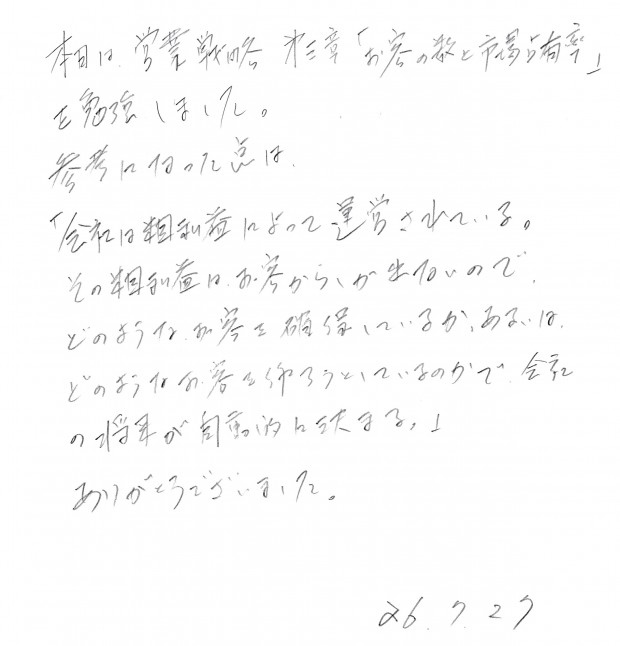 本日は、営業戦略 第三章「お客の数と市場占有率」
を勉強しました。
参考になった点は、
「会社は粗利益によって運営されている。
その粗利益は、お客からしか出ないので、
どのようなお客を確保しているか、あるいは、
どのようなお客を作ろうとしているのかで、会社
の将来が自動的に決まる。」
ありがとうございました。
26.7.27